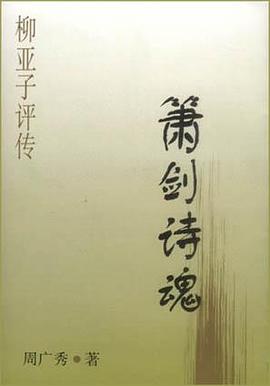 柳亚子评传
箫剑诗魂
周广秀●著